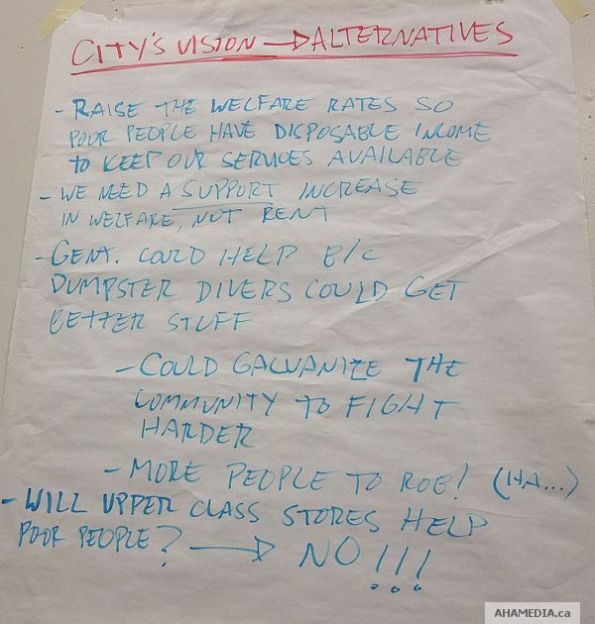 CITY'S VISION → ALTERNATIVES
- RAISE THE WELFARE RATES SO
POOR PEOPLE HAVE DISPOSABLE INCOME
TO KEEP OUR SERVICES AVAILABLE
- WE NEED A SUPPORT INCREASE
IN WELFARE, NOT RENT
- GENT. COULD HELP B/C
DUMPSTER DIVERS COULD GET
BETTER STUFF
- COULD GALVANIZE THE
COMMUNITY TO FIGHT
HARDER
- MORE PEOPLE TO ROB! (HA...)
- WILL UPPER CLASS STORES HELP
POOR PEOPLE? → NO!!!
AHAMEDIA.ca